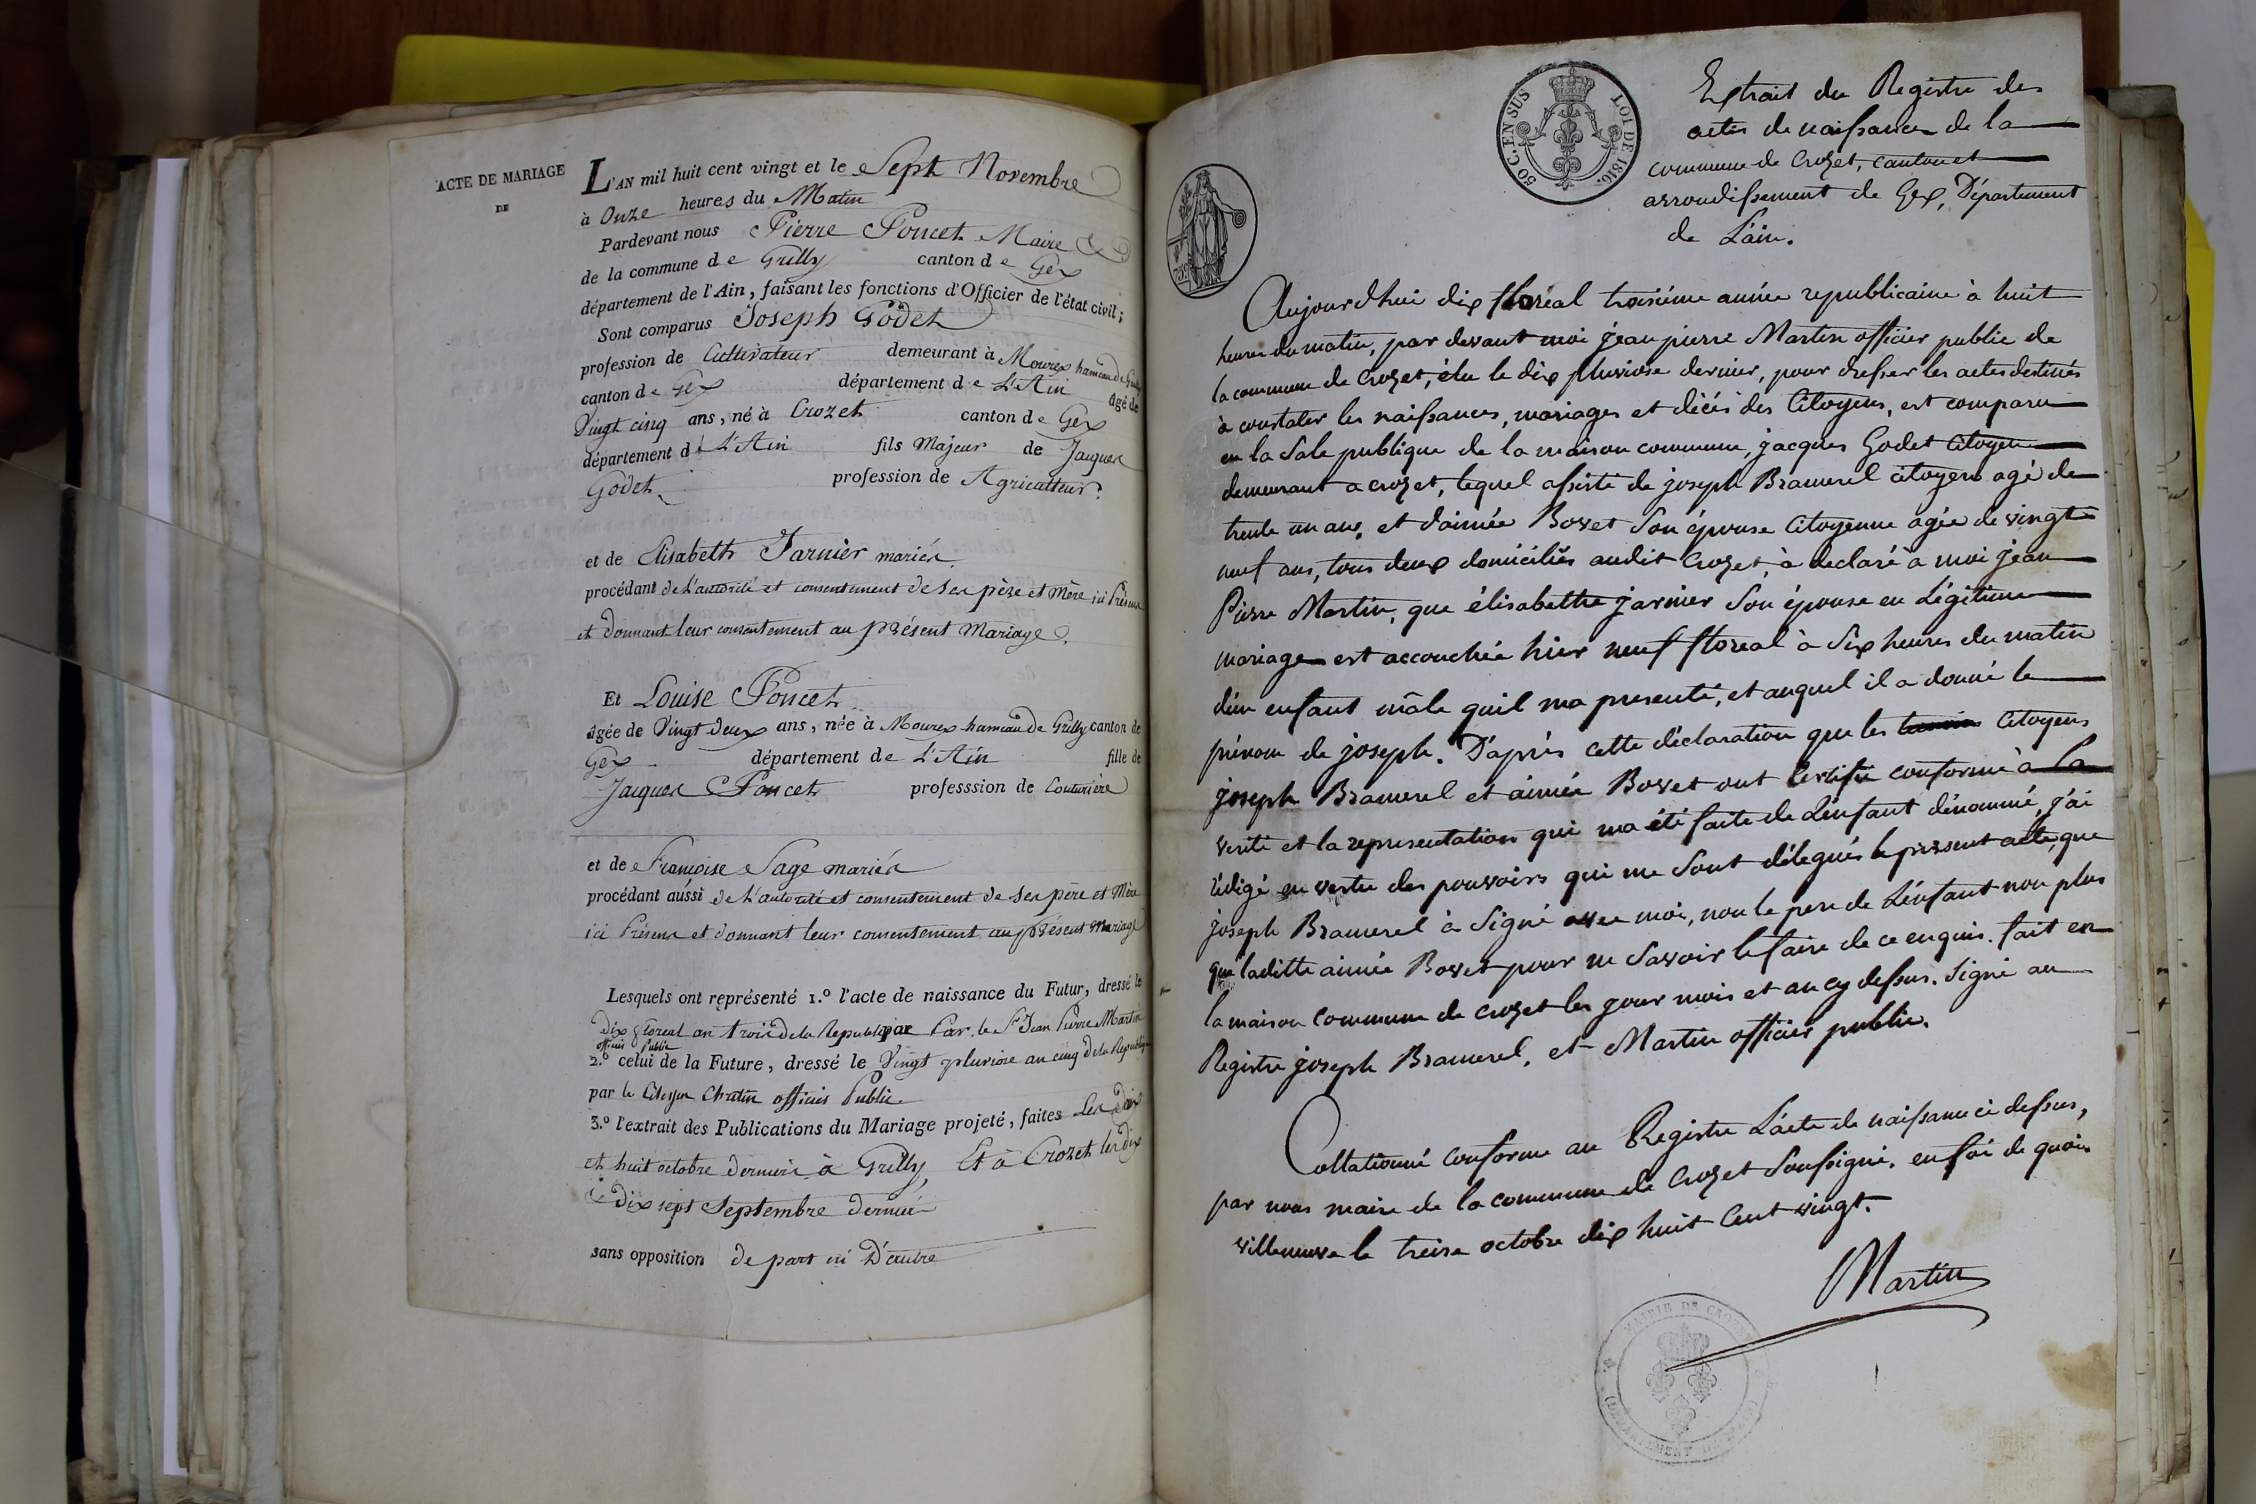 ACTE DE MARIAGE
DE
L'AN mil huit cent vingt et le Sept Novembre
à Onze heures du Matin
Pardevant nous Pierre Poncet Maire
de la commune de Grilly canton de Gex
département de l'Ain, faisant les fonctions d'Officier de l'état civil;
Sont comparus Joseph Godet
profession de Cultivateur demeurant à Mourex hameau de Grilly
canton de Gex département de L'Ain âgé de
Vingt cinq ans, né à Crozet canton de Gex
département de L'Ain fils Majeur de Jacques
Godet profession de Agriculteur.
et de Elisabeth Jarnier mariés
procédant de L'autorité et consentement de ses père et Mère ici Présens
et donnant leur consentement au présent Mariage.
Et Louise Poncet
âgée de Vingt deux ans, née à Mourex hameau de Grilly canton de
Gex département de L'Ain fille de
Jacques Poncet professsion de Couturière
et de Françoise Sage mariés
procédant aussi de L'autorité et consentement de ses père et Mère
ici Présens et donnant leur consentement au présent Mariage
Lesquels ont représenté 1.º l'acte de naissance du Futur, dressé le
Dix floreal an trois de la Republique par Par le Sr Jean Pierre Martin
officier Public
2.º celui de la Future, dressé le Vingt pluviose an cinq de la Republique
par le Citoyen Chatin officier Public
3.º l'extrait des Publications du Mariage projeté, faites Les Deux
et huit octobre dernier à Grilly, Et à Crozet les dix
et Dix sept Septembre dernier
sans opposition de part ni D'autre
50 C. EN SUS
LOI DE 1816.
Extrait du Registre des
actes de naissances de la
commune de Crozet, canton et
arrondissement de Gex, Département
de L'ain.
Aujourdhui dix floréal troisième année republicaine à huit
heures du matin, par devant moi jean pierre Martin officier public de
la commune de Crozet, élu le dix pluviose dernier, pour dresser les actes destinés
à constater les naissances, mariages et décés des Citoyens, est comparu
en la Sale publique de la maison commune, jacques Godet Citoyen
demeurant a crozet, lequel assisté de joseph Bramerel citoyen agé de
trente un ans, et d'aimée Bovet Son épouse Citoyenne agée de vingt
neuf ans, tous deux domiciliés audit Crozet, à declaré à moi jean
Pierre Martin, que élisabethe jarnier Son épouse en Légitime
mariage est accouchée hier neuf floreal à Six heures du matin
d'un enfant mâle quil ma presenté, et auquel il a donné le
prénom de joseph. D'après cette déclaration que les temoins Citoyens
joseph Bramerel et aimée Bovet ont Certifié conforme à la
verité et la representation qui ma été faite de L'enfant dénommé, j'ai
rédigé en vertu des pouvoirs qui me Sont délegués le present acte, que
joseph Bramerel à Signé avec moi, non le pere de L'enfant non plus
que laditte aimée Bovet pour ne Savoir le faire de ce enquis. fait en
la maison commune de crozet les jour mois et an cy dessus. Signé au
Registre joseph Bramerel, et Martin officier public.
Collationné conforme au Registre L'acte de naissance ci dessus,
par nous maire de la commune de Crozet Soussigné. en foi de quoi
villeneuve le treize octobre dix huit Cent vingt.
Martin
MAIRIE DE CROZET
(DEPARTEMENT DE L'AIN)